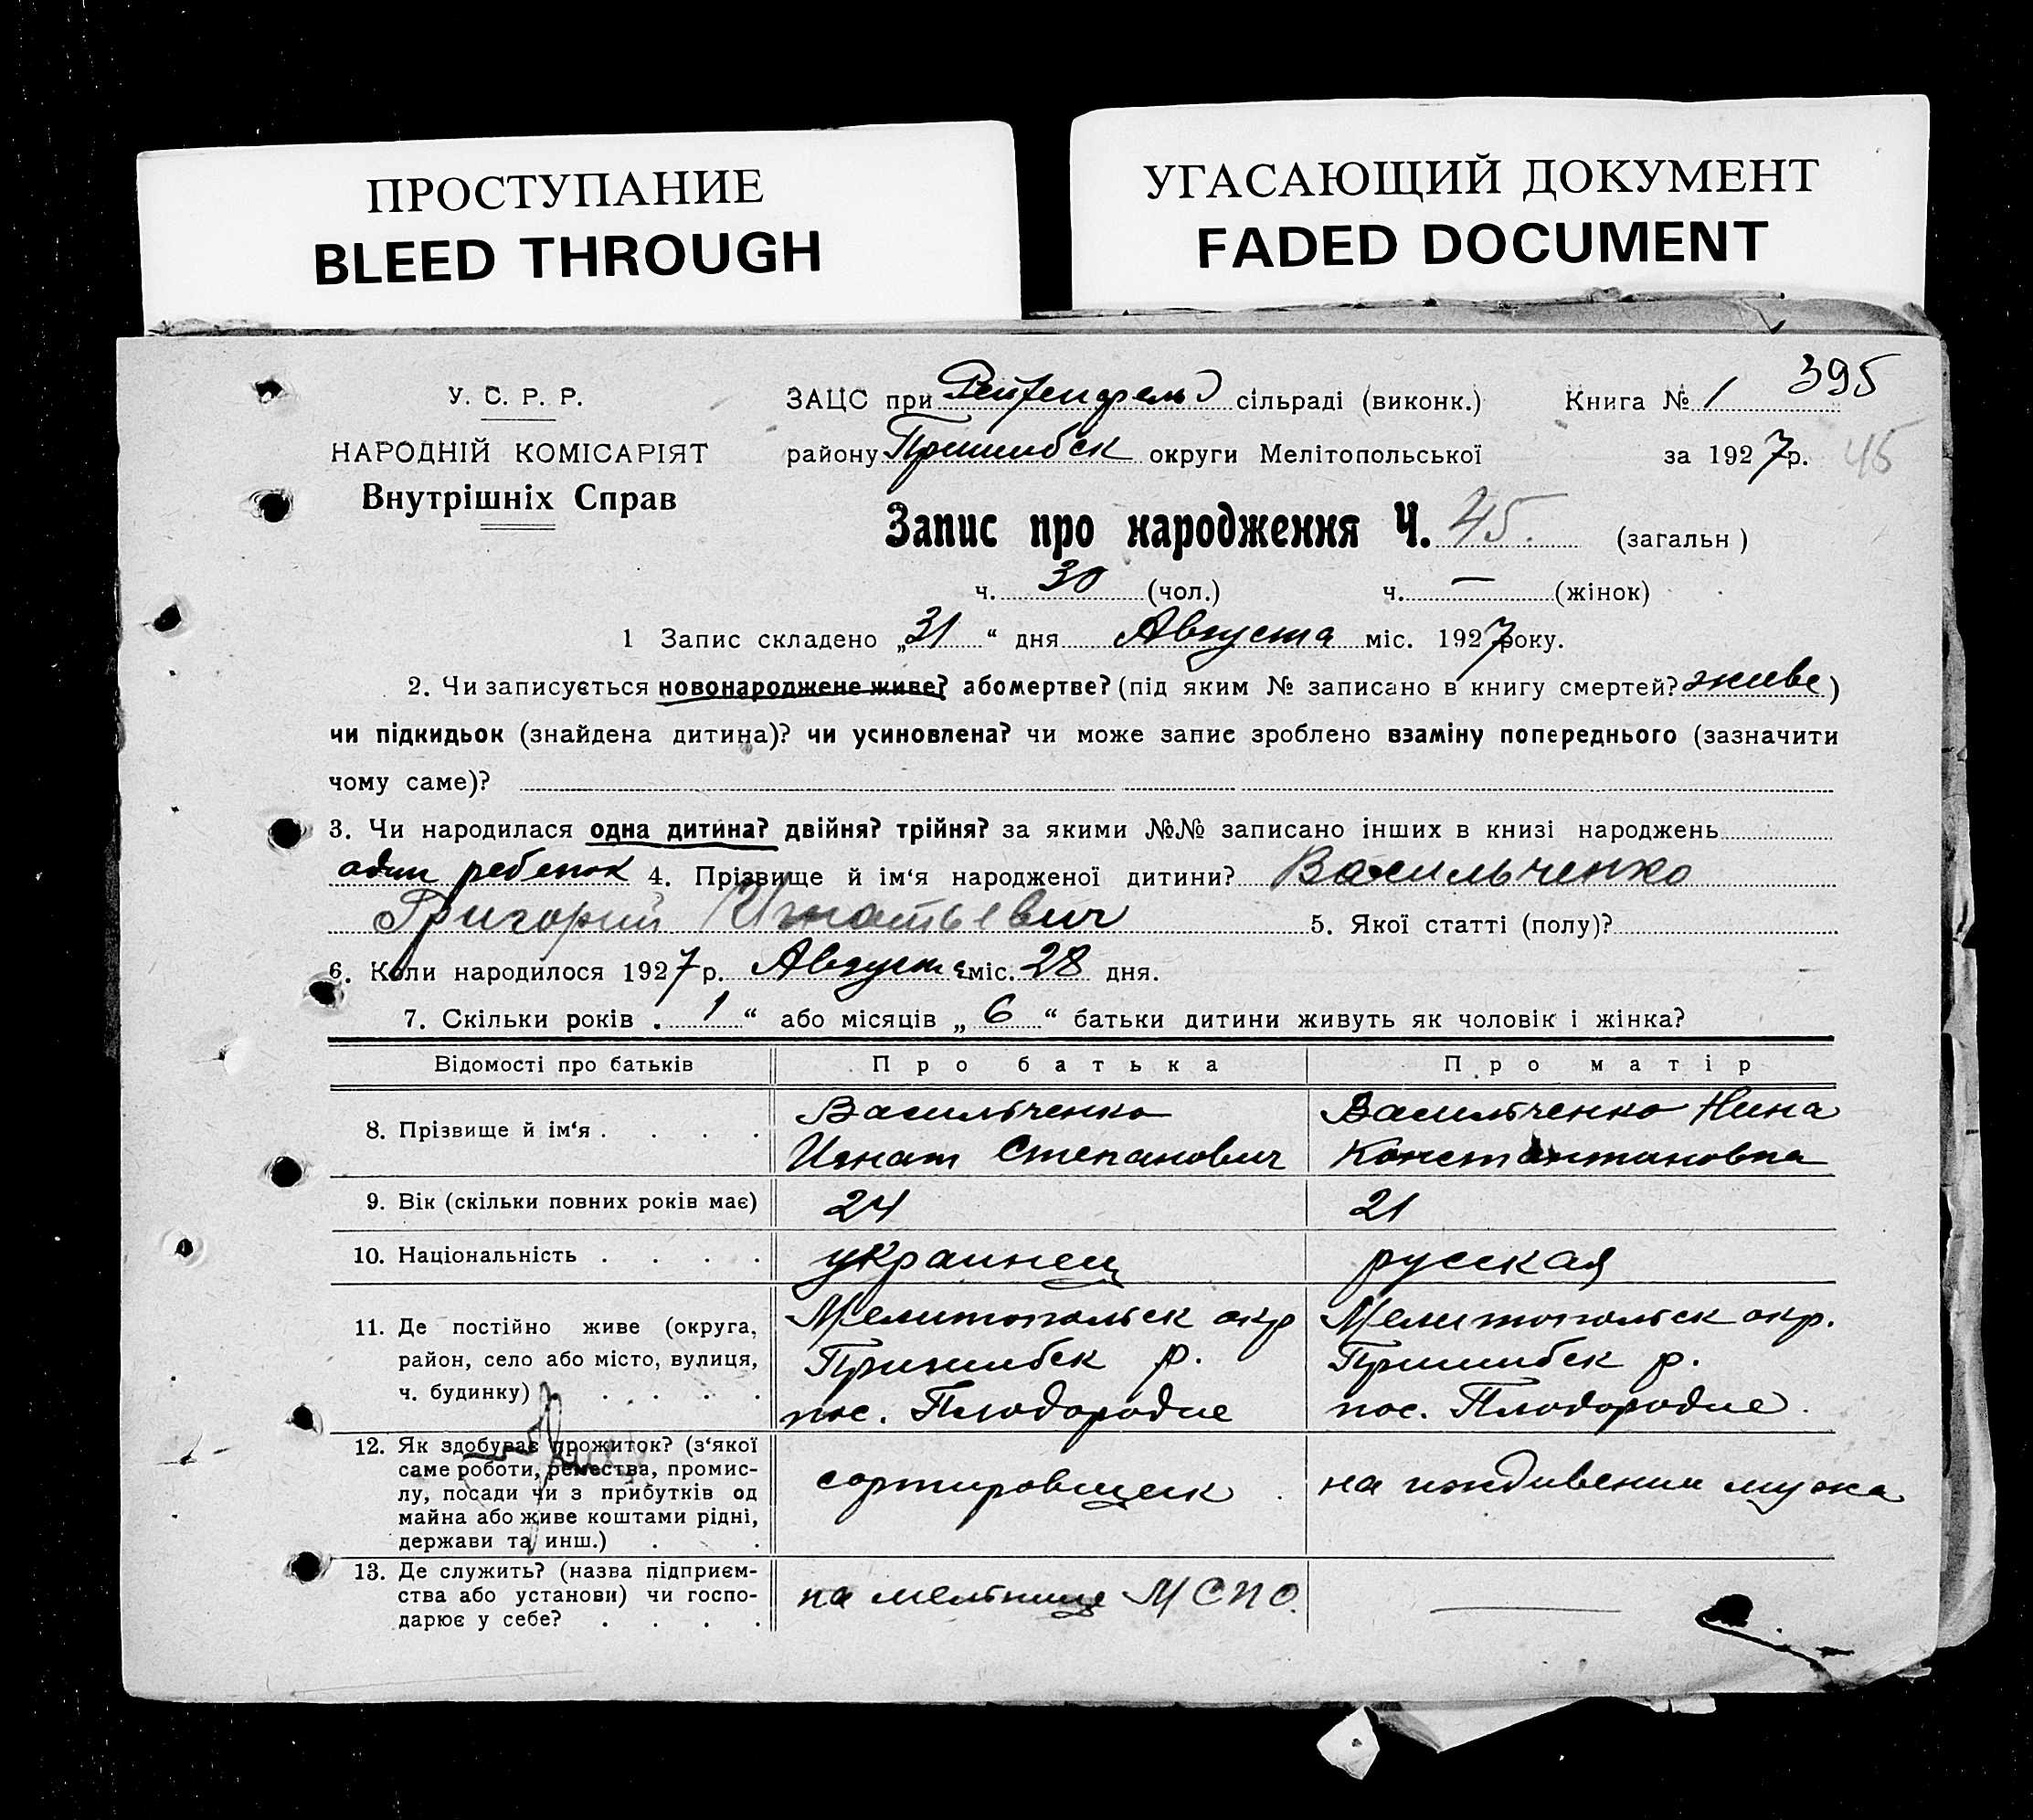 ПРОСТУПАНИЕ
BLEED THROUGH
УГАСАЮЩИЙ ДОКУМЕНТ
FADED DOCUMENT
395
У. С. Р. Р.
НАРОДНІЙ КОМІСАРІЯТ
Внутрішніх Справ
ЗАЦС при Рейхенфельд сільраді (виконк.) Книга № 1
району Пришибск округи Мелітопольської за 1927р. 45
Запис про народження Ч. 45. (загальн )
ч. 30 (чол.) ч. — (жінок)
1 Запис складено „31“ дня Августа міс. 1927року.
2. Чи записується новонароджене живе? або мертве? (під яким № записано в книгу смертей? живе)
чи підкидьок (знайдена дитина)? чи усиновлена? чи може запис зроблено взаміну попереднього (зазначити
чому саме)?
3. Чи народилася одна дитина? двійня? трійня? за якими №№ записано інших в книзі народжень
один ребенок 4. Прізвище й ім‘я народженої дитини? Васильченко
Григорий Игнатьевич 5. Якої статті (полу)?
6. Коли народилося 1927 р. Августа міс. 28 дня.
7. Скільки років . 1 “ або місяців „ 6 “ батьки дитини живуть як чоловік і жінка?
Відомості про батьків Про батька Про матір
8. Прізвище й ім‘я . . . . Васильченко Игнат Степанович Васильченко Нина Константиновна
9. Вік (скільки повних років має) 24 21
10. Національність . . . . украинец русская
11. Де постійно живе (округа, Мелитопольск окр Мелитопольск окр.
район, село або місто, вулиця, Пришибск р. Пришибск р.
ч. будинку) . . . . . пос. Плодородие пос. Плодородие.
12. Як здобуває прожиток? (з‘якої
саме роботи, ремества, промис-
лу, посади чи з прибутків од
майна або живе коштами рідні,
держави та инш.) . .
сортировщик на иждивении мужа
13. Де служить? (назва підприєм-
ства або установи) чи госпо-
дарює у себе? . . . .
на мельнице МСПО. —